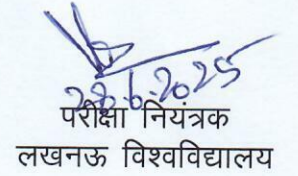 28.6.2025
परीक्षा नियंत्रक
लखनऊ विश्वविद्यालय